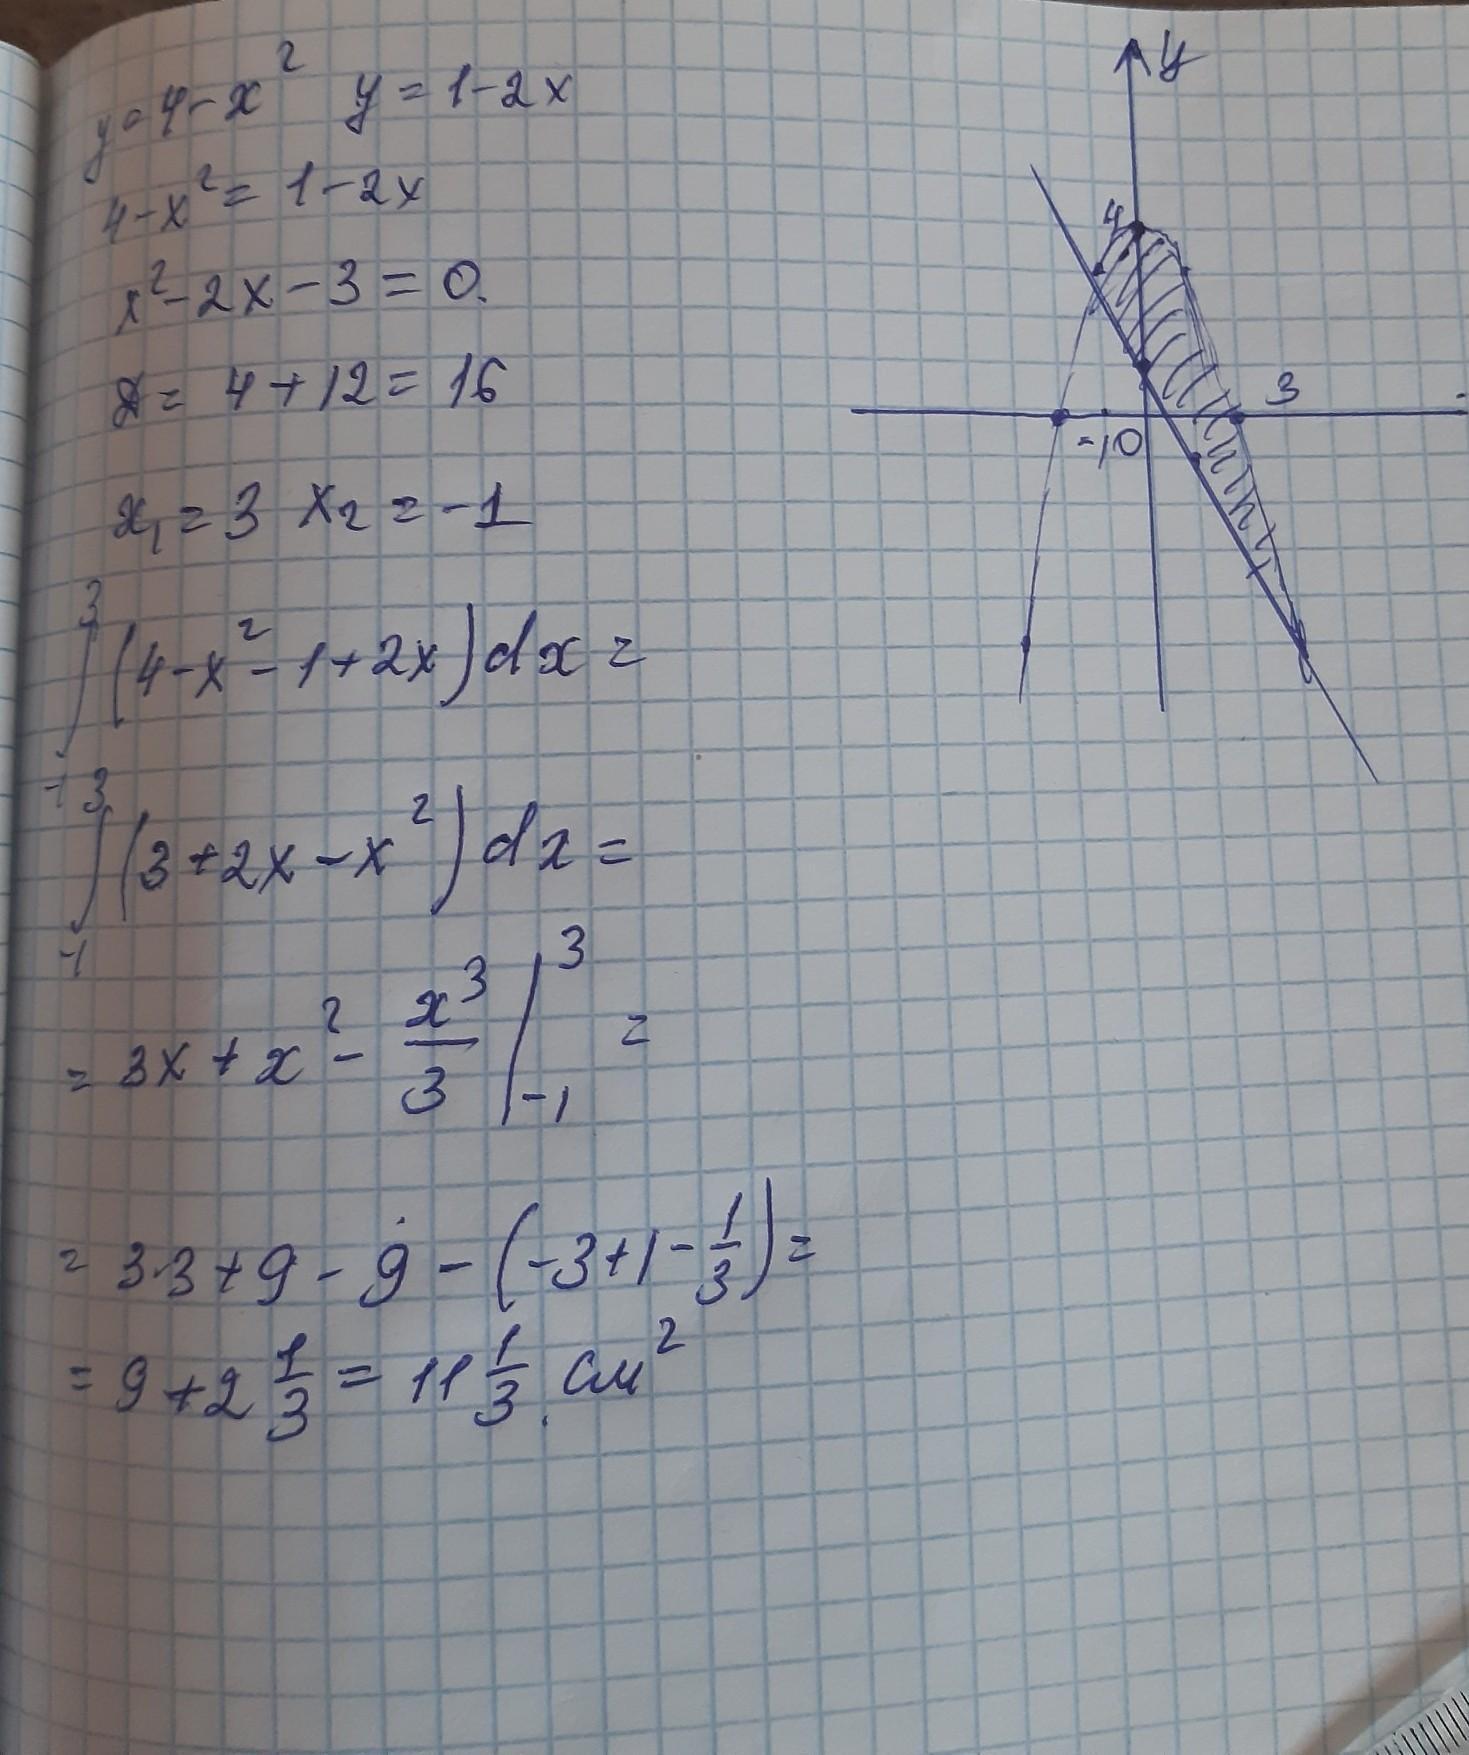 y = 4 - x² y = 1 - 2x
4 - x² = 1 - 2x
x² - 2x - 3 = 0.
D = 4 + 12 = 16
x₁ = 3 x₂ = -1
∫₋₁³ (4 - x² - 1 + 2x) dx =
∫₋₁³ (3 + 2x - x²) dx =
= 3x + x² - x³/3 |₋₁³ =
= 3·3 + 9 - 9 - (-3 + 1 - 1/3) =
= 9 + 2 1/3 = 11 1/3 . см²
y
4
3
-1 0